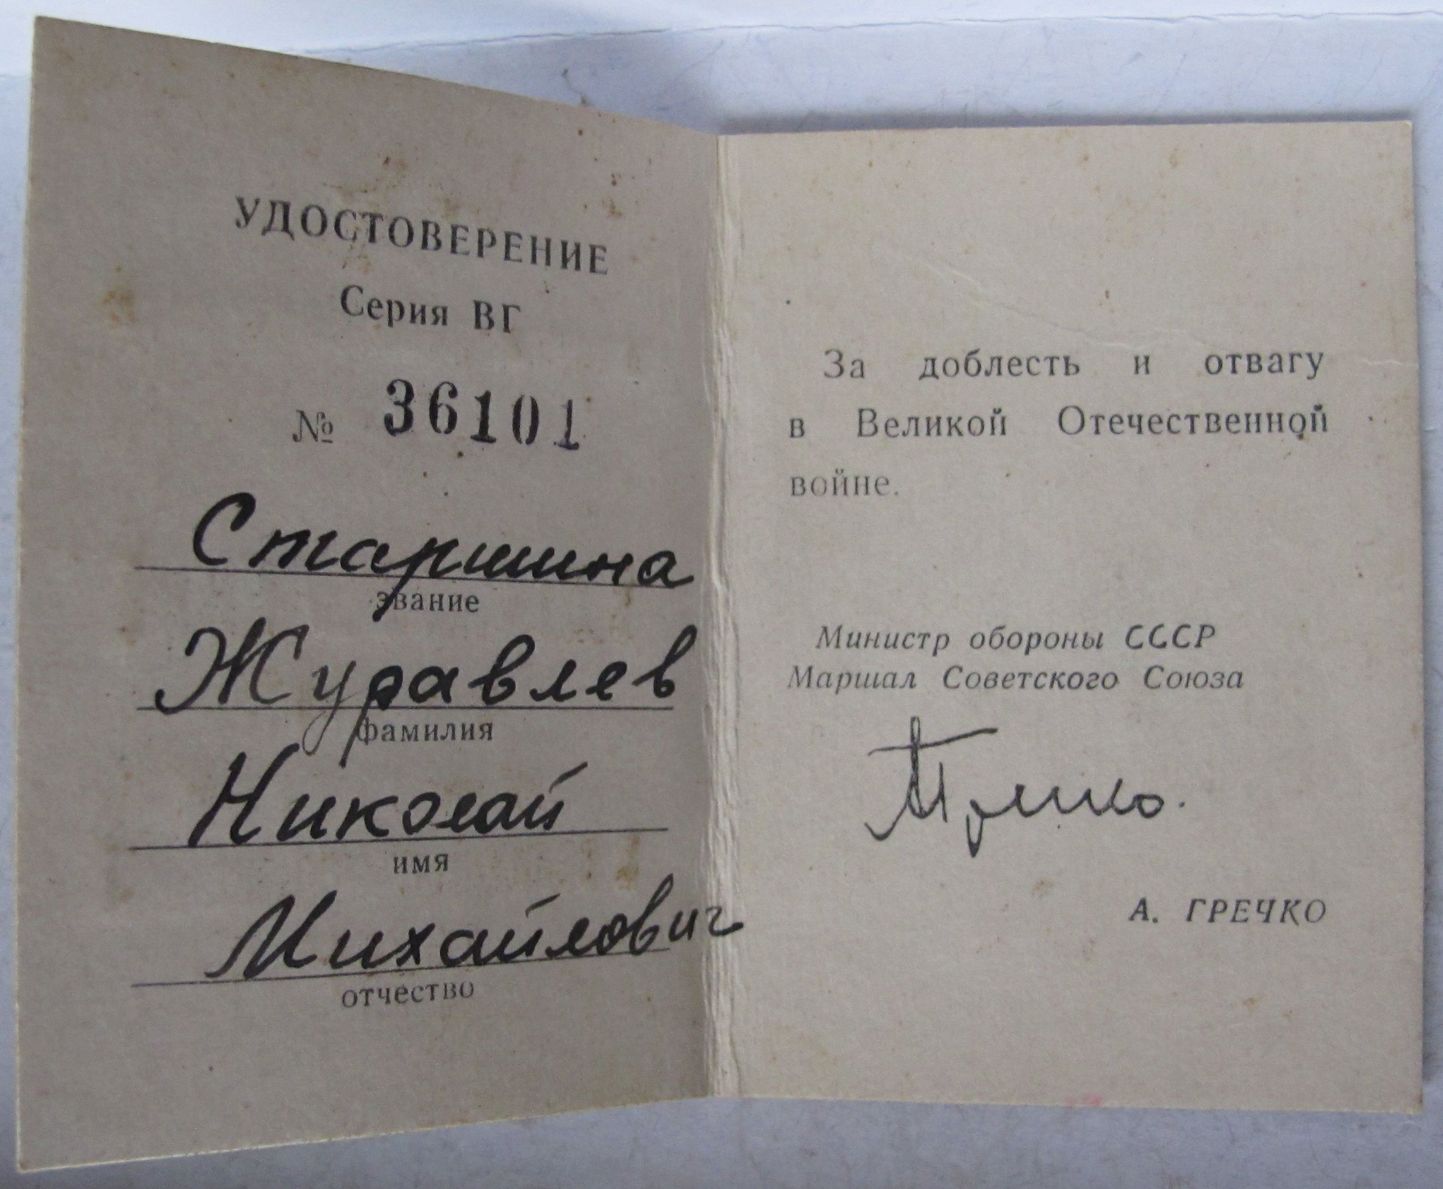 УДОСТОВЕРЕНИЕ
Серия ВГ
№ 36101
Старшина
звание
Журавлев
фамилия
Николай
имя
Михайлович
отчество
За доблесть и отвагу
в Великой Отечественной
войне.
Министр обороны СССР
Маршал Советского Союза
АГречко.
А. ГРЕЧКО